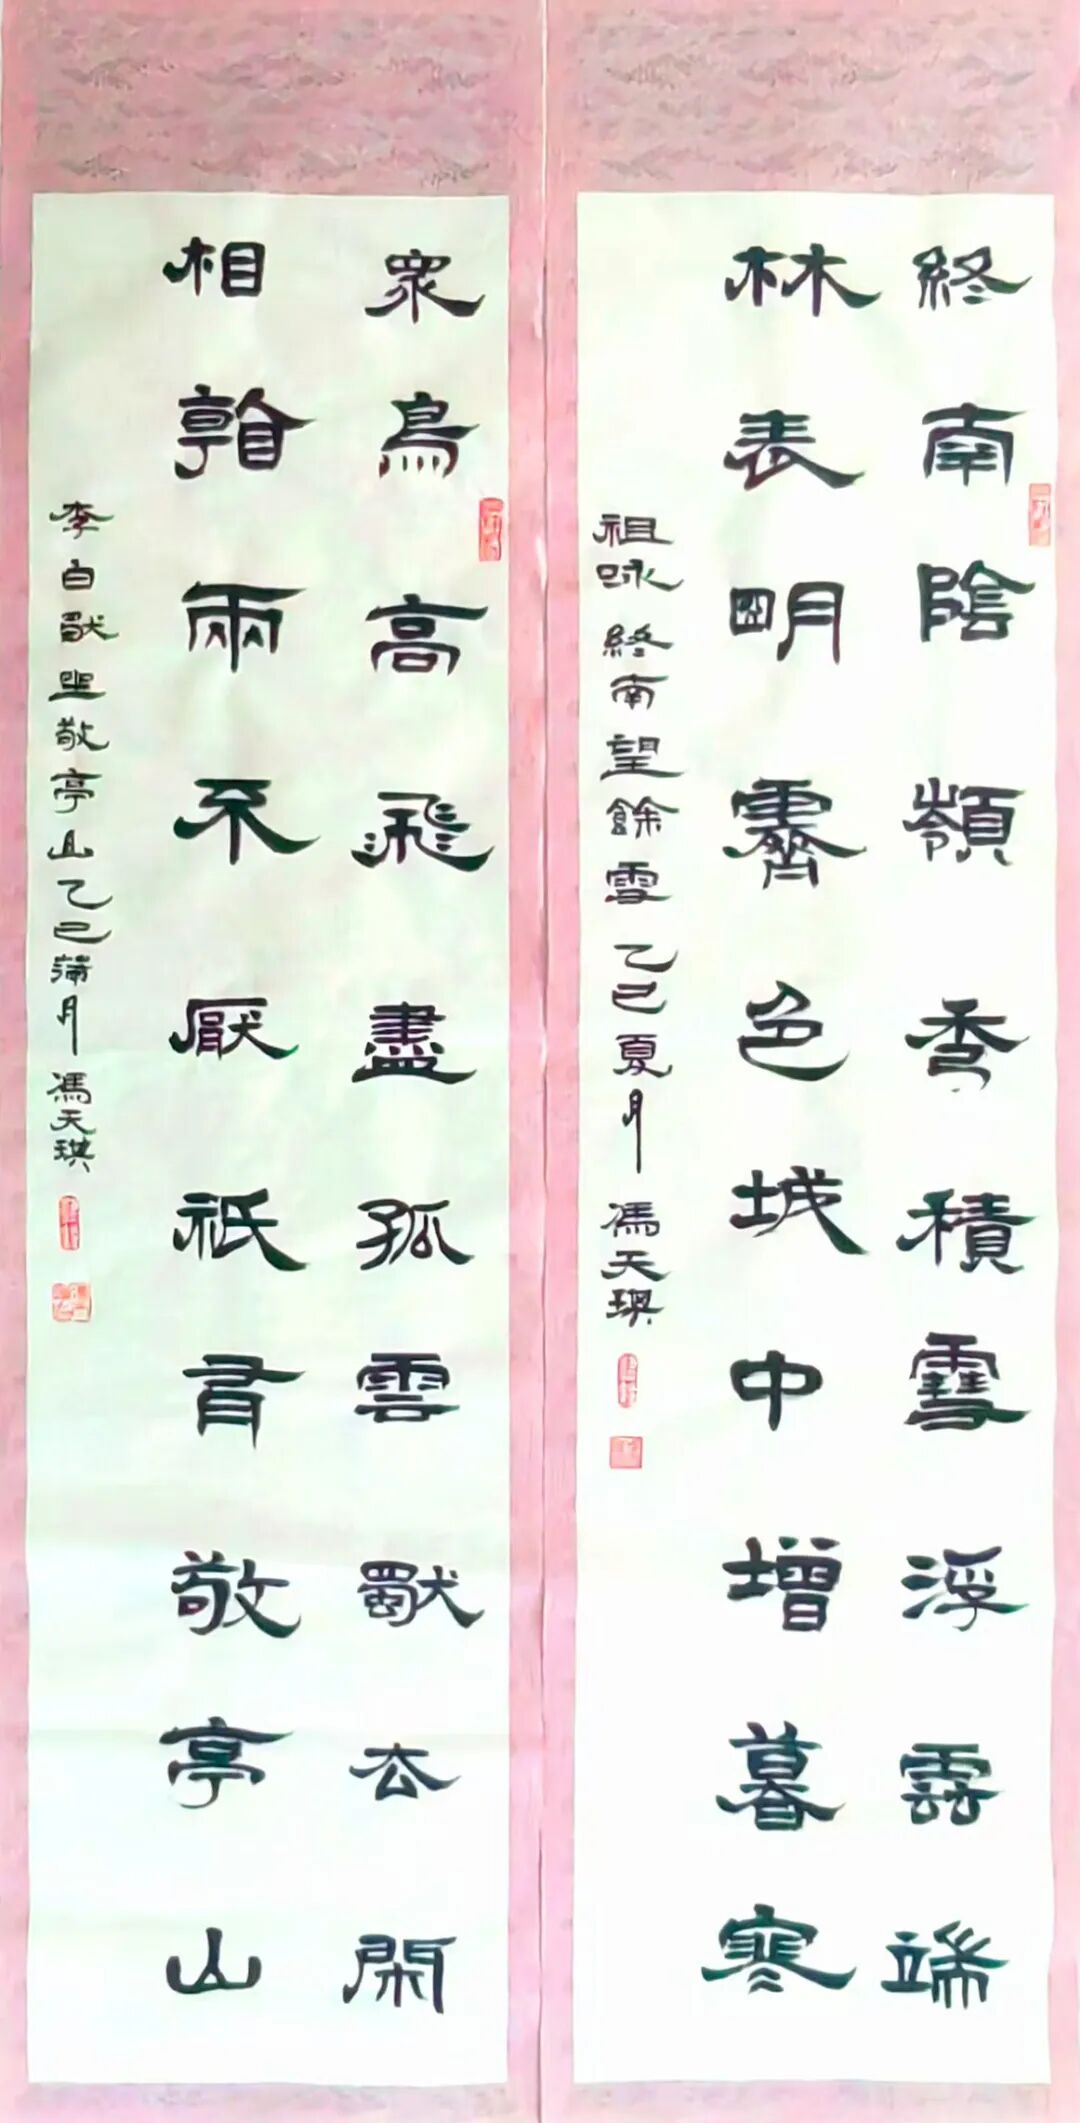 終南陰嶺秀積雪浮雲端
林表明霽色城中增暮寒
祖咏終南望餘雪 乙巳夏月 馮天琪
眾鳥高飛盡孤雲獨去閑
相看兩不厭祇有敬亭山
李白獨坐敬亭山乙巳蒲月 馮天琪